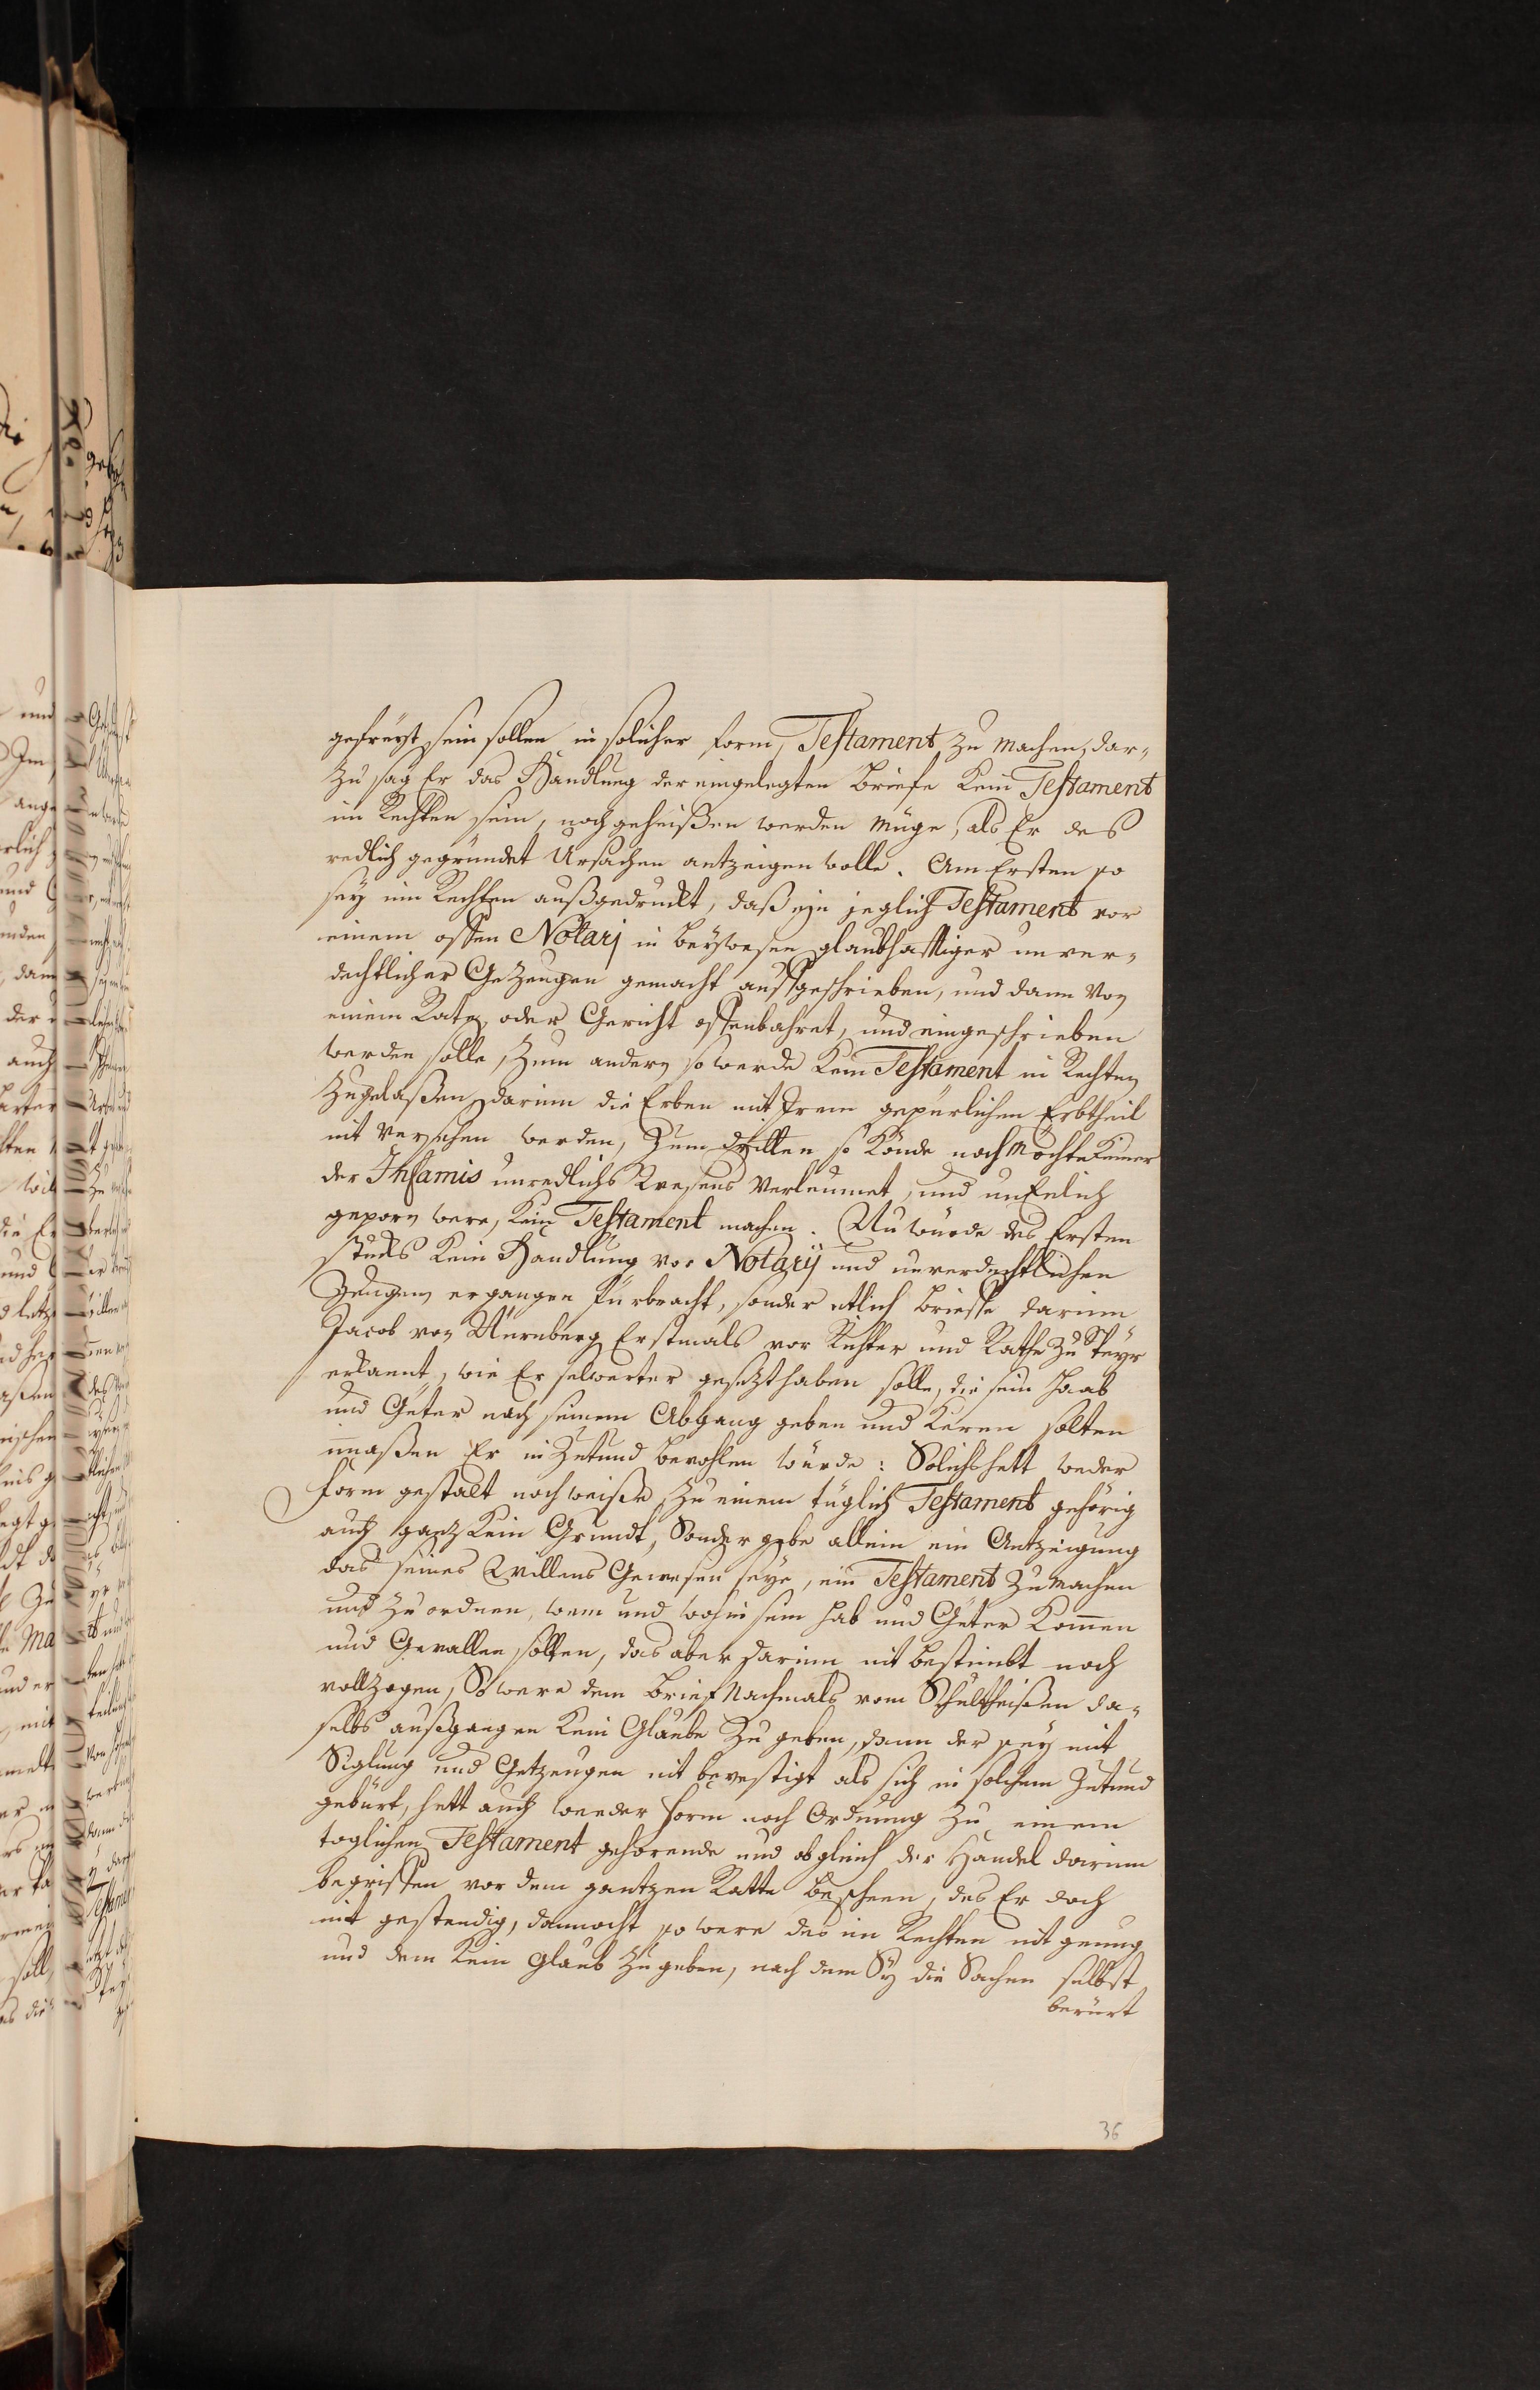 gefreyt sein sollen in solicher form, Testament zu machen, dar„
zu sag Er das Handlung der eingelegten Briefe kein Testament
im Rechten sein, noch geheißen werden müge, als Er des
redlich gegründet Ursachen antzeigen wolle. Am Ersten so
sey im Rechten außgedruckt, daß ein jeglich Testament vor
einem offen Notarj in beywesen glaubhafftiger unver„
dechtlicher Gezeugen gemacht auffgeschrieben, und dann von
einem Rath, oder Gericht offenbahret, und eingeschrieben
werden solle, Zum andern so werde kein Testament in Rechten
zugelaßen, darinn die Erben mit Irem gepürlichen Erbtheil
nit versehen werden, Zum dritten so könde noch möchte keiner
der Infamis unredlichs Wesens verleumet, und unEelich
geporn were, kein Testament machen. Nu würde des Ersten
stucks kein Handlung vor Notarÿ und unverdechtlichen
Zeugen ergangen fürbracht, sonder etlich Brieffe darinn
Jacob von Nürnberg Erstmals vor Richter und Rathe zu Speyr
erkannt, wie Er selwerter gesezt haben solle, die sein Haab
und Güter nach seinem Abgang geben und keren solten
inmaßen Er in Zutund bevohlen würde: Solichs hett weder
form gestalt noch weiße, zu einem tüglich Testament gehörig
auch ganz kein Grundt, Sonder gebe allein ein Antzeigung
das seines Willens Gewesen seye, ein Testament zu machen
und zu ordnen, wem und wohin sein Hab und Güter kommen
und Gevallen solten, das aber darinn nit bestimbt noch
vollzogen, So were dem Brief nachmals vom Schultheißen da„
selbs außgangen kein Glaube zu geben, dann der sey mit
Siglung und Getzeugen nit bevestigt als sich in solchem Zutund
gebürt, hett auch weeder form noch Ordnung zu einem
toglichen Testament gehörende und obgleich der Handel darinn
begriffen vor dem gantzen Ratte beschen, des Er doch
nit gestendig, dannocht so were das im Rechten nit genug
und dem kein glaub zu geben, nach dem Sy die Sachen selbst
berürt
36